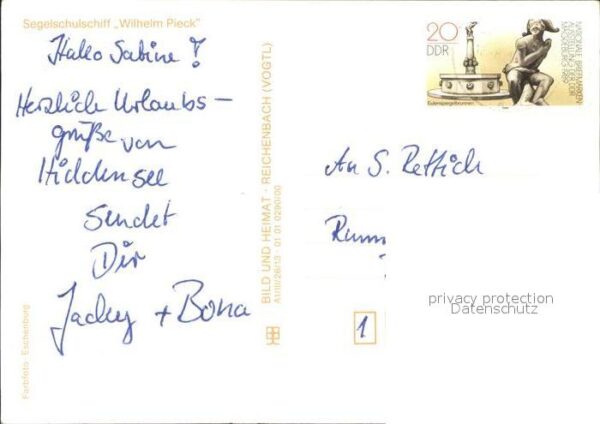 Segelschulschiff „Wilhelm Pieck"
Hallo Sabine!
Herzliche Urlaubs-
grüße von
Hiddensee
sendet
Dir
Jacky + Bona
Farbfoto: Eschenburg
BILD UND HEIMAT · REICHENBACH (VOGTL)
01 01 0290/00
20
DDR
Eulenspiegelbrunnen
NATIONALE BRIEFMARKEN
AUSSTELLUNG DER DDR
MAGDEBURG
An S. Rettich
1
privacy protection
Datenschutz